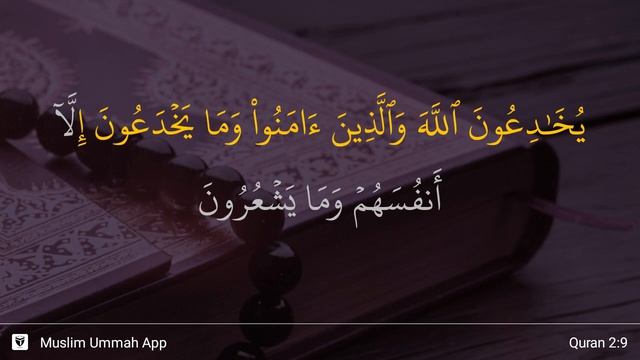 يُخَٰدِعُونَ ٱللَّهَ وَٱلَّذِينَ ءَامَنُوا۟ وَمَا يَخْدَعُونَ إِلَّآ
أَنفُسَهُمْ وَمَا يَشْعُرُونَ
Muslim Ummah App
Quran 2:9